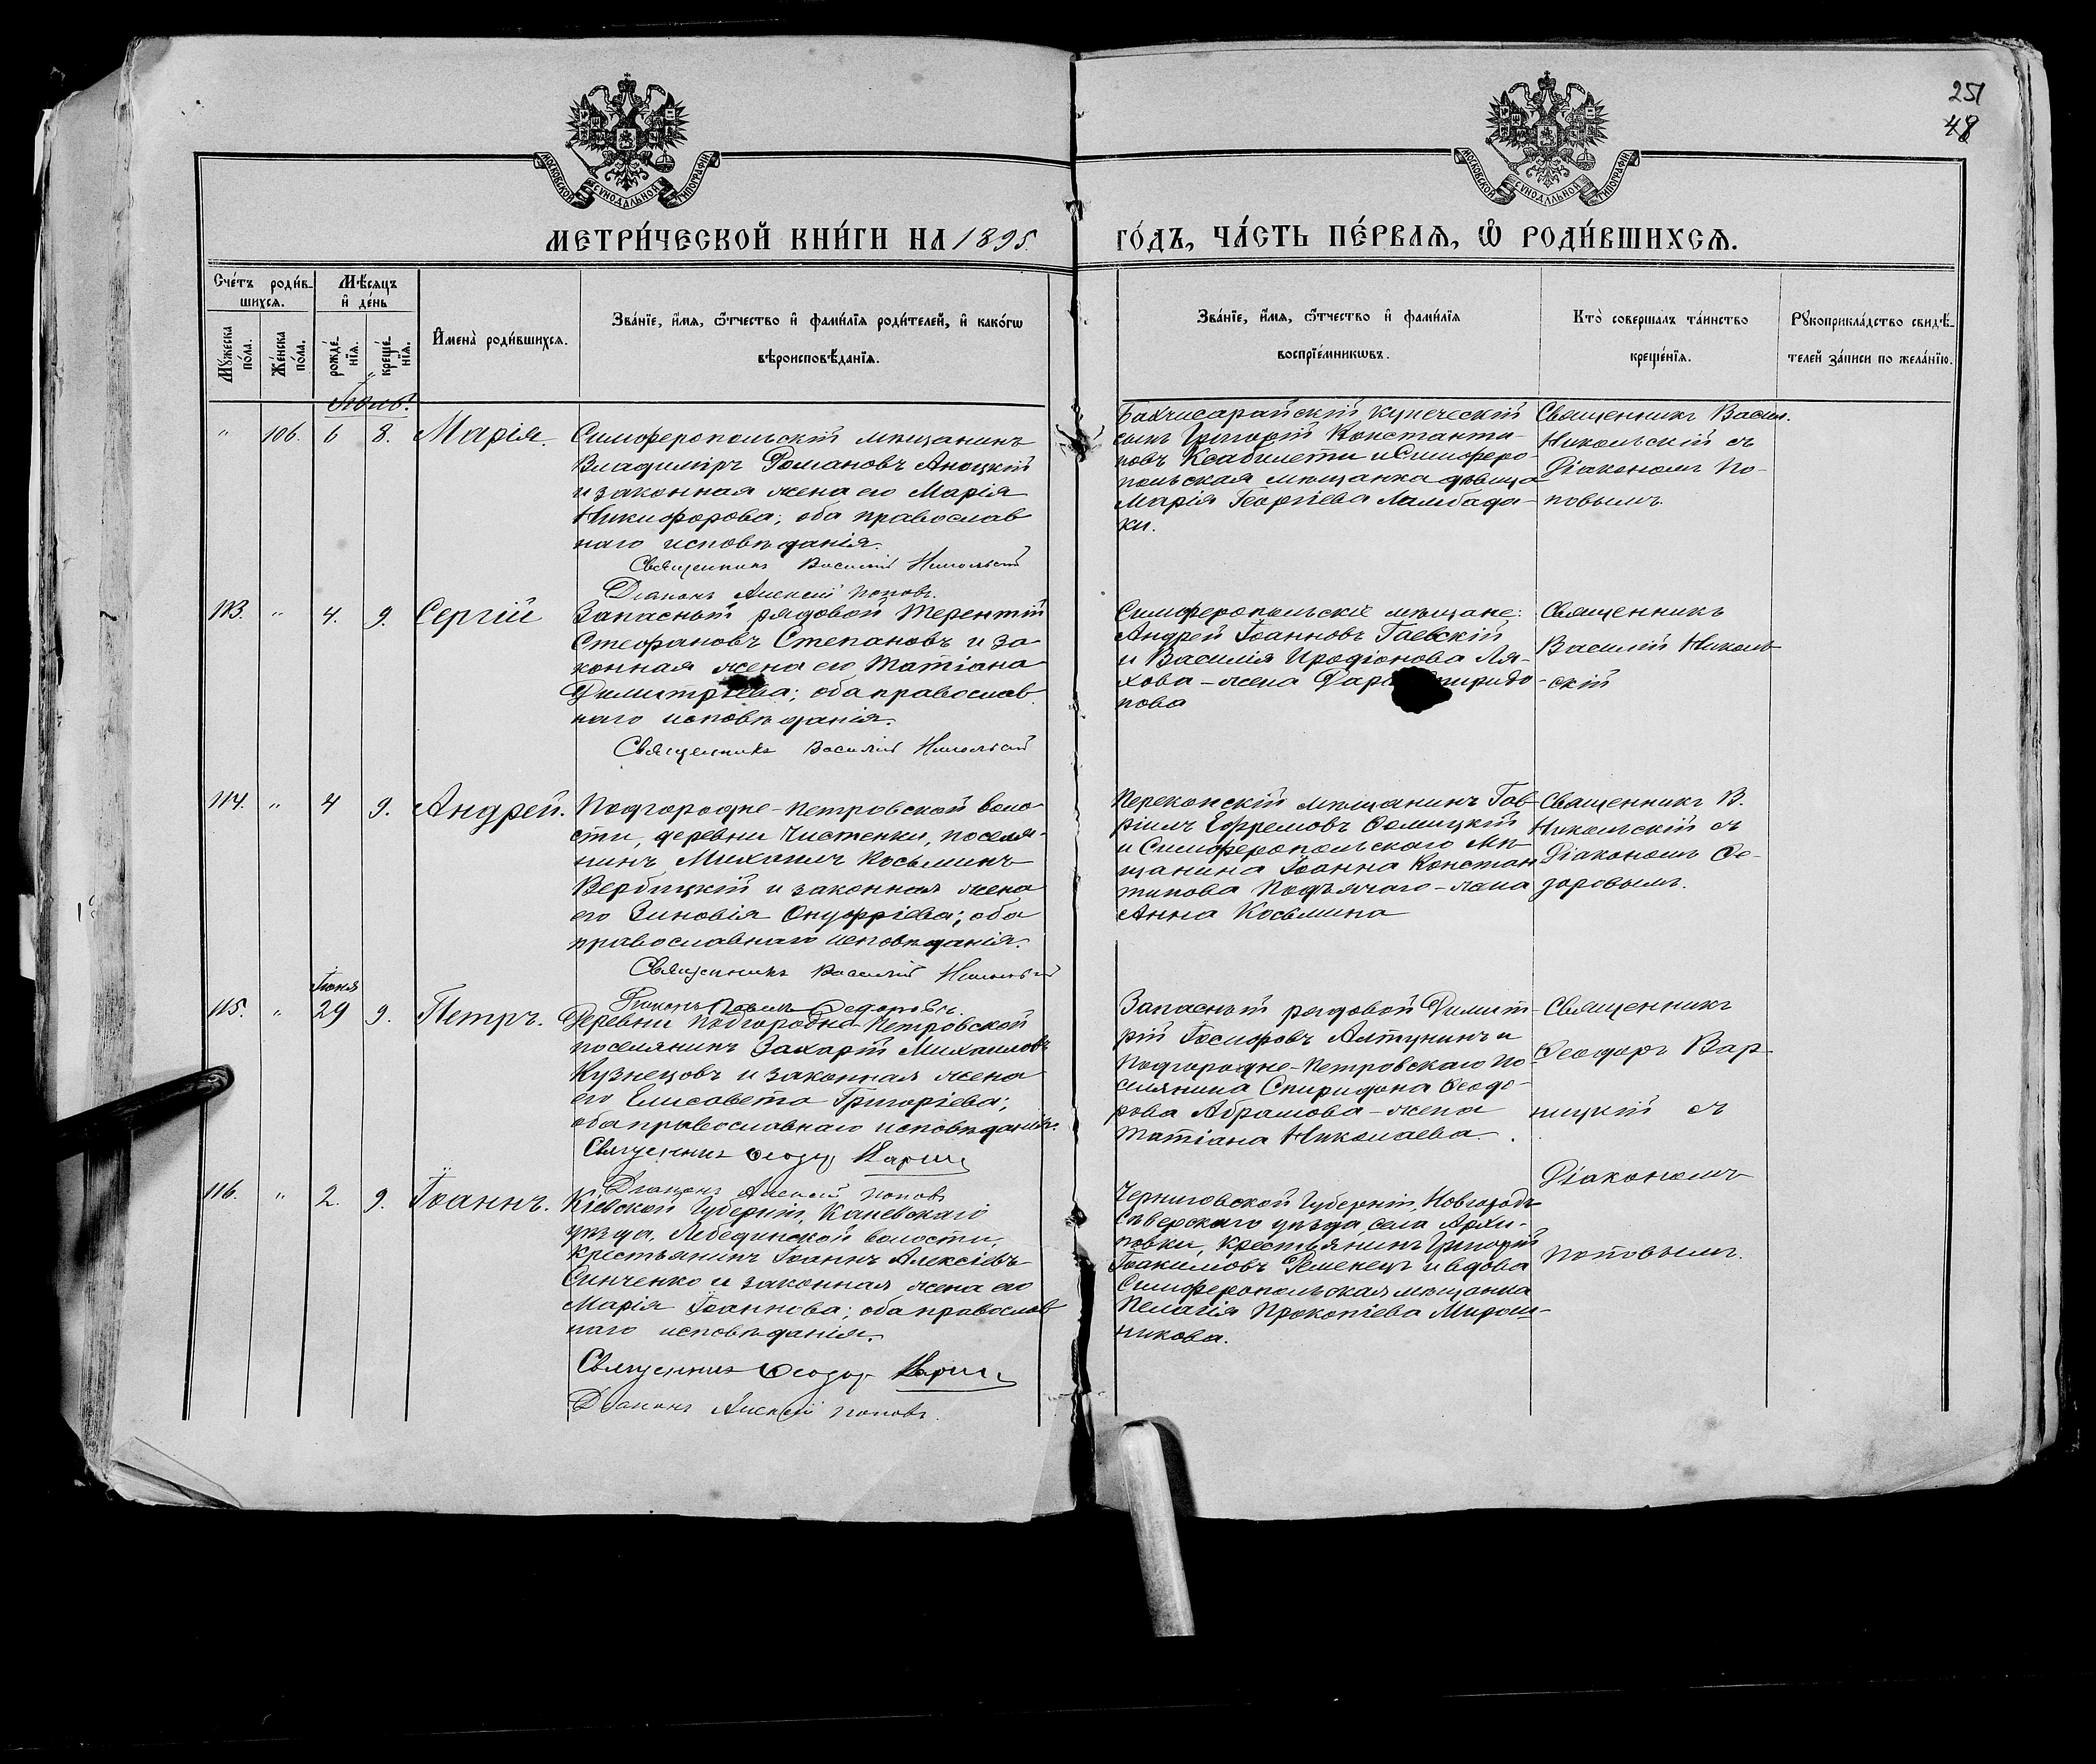 251
48
МОСКОВСКОЙ СѴНОДАЛЬНОЙ ТИПОГРАФІИ
МОСКОВСКОЙ СѴНОДАЛЬНОЙ ТИПОГРАФІИ
МЕТРИ́ЧЕСКОЙ КНИ́ГИ НА 1895. ГО́ДЪ, ЧА́СТЬ ПЕ́РВАѦ, Ѡ҆ РОДИ́ВШИХСѦ.
Сче́тъ роди́в-
шихсѧ.
Мꙋжеска
по́ла.
Же́нска
по́ла.
Мѣ́сѧцъ
и҆ де́нь
рожде́-
нїѧ.
креще́-
нїѧ.
И҆мена̀ роди́вшихсѧ.
Зва́нїе, и҆́мѧ, ѻ҆́тчество и҆ фами́лїѧ роди́телей, и҆ како́гѡ
вѣроисповѣ́данїѧ.
Зва́нїе, и҆́мѧ, ѻ҆́тчество и҆ фами́лїѧ
воспрїе́мникѡвъ.
Кто̀ соверша́лъ та́инство
креще́нїѧ.
Рꙋкоприкла́дство свидѣ́-
телей за́писи по жела́нїю.
Іюль.
" 106. 6 8. Марія.
Симферопольскій мѣщанинъ
Владиміръ Романовъ Аноцкій
и законная жена его Марія
Никифорова; оба православ
наго исповѣданія.
Священникъ Василій Никольскій
Діаконъ Алексій Поповъ.
Бахчисарайскій купеческій
сынъ Григорій Константи-
новъ Ксабилети и Симферо-
польская мѣщанка дѣвица
Марія Георгіева Ламбада-
ки.
Священникъ Васил.
Никольскій съ
Діакономъ По-
повымъ.
113. " 4. 9. Сергій
Запасный рядовой Терентій
Стефановъ Степановъ и за
конная жена его Татіана
Димитріева; оба православ
наго исповѣданія.
Священникъ Василій Никольскій
Симферопольскіе мѣщане:
Андрей Іоанновъ Гаевскій
и Василія Иродіонова Ля-
хова - жена Дарья Спиридо-
нова
Священникъ
Василій Николь
скій
114. " 4 9. Андрей.
Подгородне-Петровской воло
сти, деревни Чистенки, поселя-
нинъ Михаилъ Косьминъ
Вербицкій и законная жена
его Зиновія Онуфріева; оба
православнаго исповѣданія.
Священникъ Василій Никольскій
Діаконъ Павелъ Ѳедоровъ.
Перекопскій мѣщанинъ Гав-
ріилъ Ефремовъ Ѳомицкій
и Симферопольскаго мѣ-
щанина Іоанна Констан
тинова Подъячаго - жена
Анна Косьмина
Священникъ В.
Никольскій съ
Діакономъ Ѳе-
доровымъ.
Іюня
115. " 29 9. Петръ.
Деревни Подгородне-Петровской
поселянинъ Захарій Михаиловъ
Кузнецовъ и законная жена
его Елисавета Григоріева;
оба православнаго исповѣданія.
Священникъ Ѳеодоръ
Діаконъ Алексій Поповъ
Запасный рядовой Димит-
рій Іосифовъ Алтунинъ и
Подгородне-Петровскаго по-
селянина Спиридона Ѳеодо-
рова Абрамова - жена
Татіана Николаева.
Священникъ
Ѳеодоръ Вар-
ницкій съ
Діакономъ
Поповымъ.
116. " 2. 9. Іоаннъ.
Кіевской губерніи, Каневскаго
уѣзда, Лебединской волости,
крестьянинъ Іоаннъ Алексіевъ
Синченко и законная жена его
Марія Іоаннова; оба православ
наго исповѣданія.
Священникъ Ѳеодоръ
Діаконъ Алексій Поповъ.
Черниговской губерніи, Новгородъ
Сѣверскаго уѣзда, села Архи-
повки, крестьянинъ Григорій
Іоакимовъ Ременецъ и вдова
Симферопольская мѣщанка
Пелагія Прокопіева Мирош-
никова.